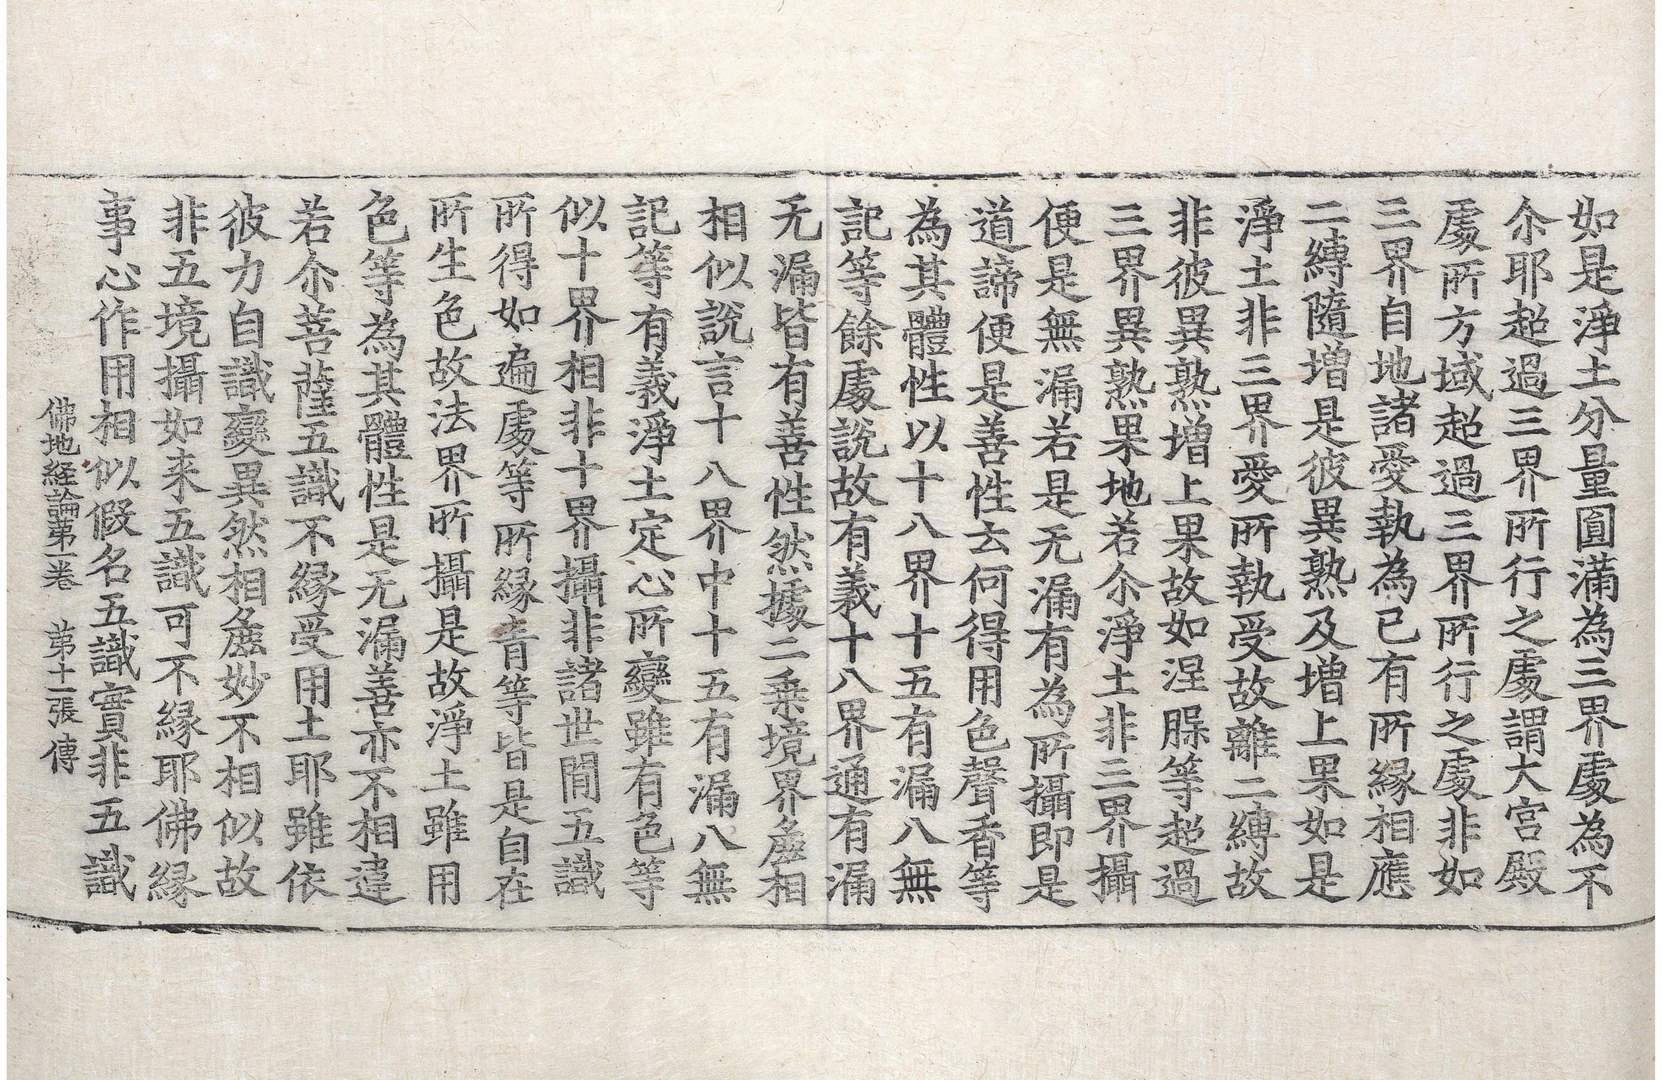 如是淨土分量圓滿為三界處為不
尒耶超過三界所行之處謂大宮殿
處所方域超過三界所行之處非如
三界自地諸愛執為已有所緣相應
二縛隨增是彼異熟及增上果如是
淨土非三界愛所執受故離二縛故
非彼異熟增上果故如涅槃等超過
三界異熟果地若尒淨土非三界攝
便是無漏若是无漏有為所攝即是
道諦便是善性云何得用色聲香等
為其體性以十八界十五有漏八無
記等餘處說故有義十八界通有漏
无漏皆有善性然據二乗境界麁相
相似說言十八界中十五有漏八無
記等有義淨土定心所變雖有色等
似十界相非十界攝非諸世間五識
所得如遍處等所緣青等皆是自在
所生色故法界所攝是故淨土雖用
色等為其體性是无漏善亦不相違
若尒菩薩五識不緣受用土耶雖依
彼力自識變異然相麁妙不相似故
非五境攝如来五識可不緣耶佛緣
事心作用相似假名五識實非五識
佛地経論第一卷　第十一張　傳